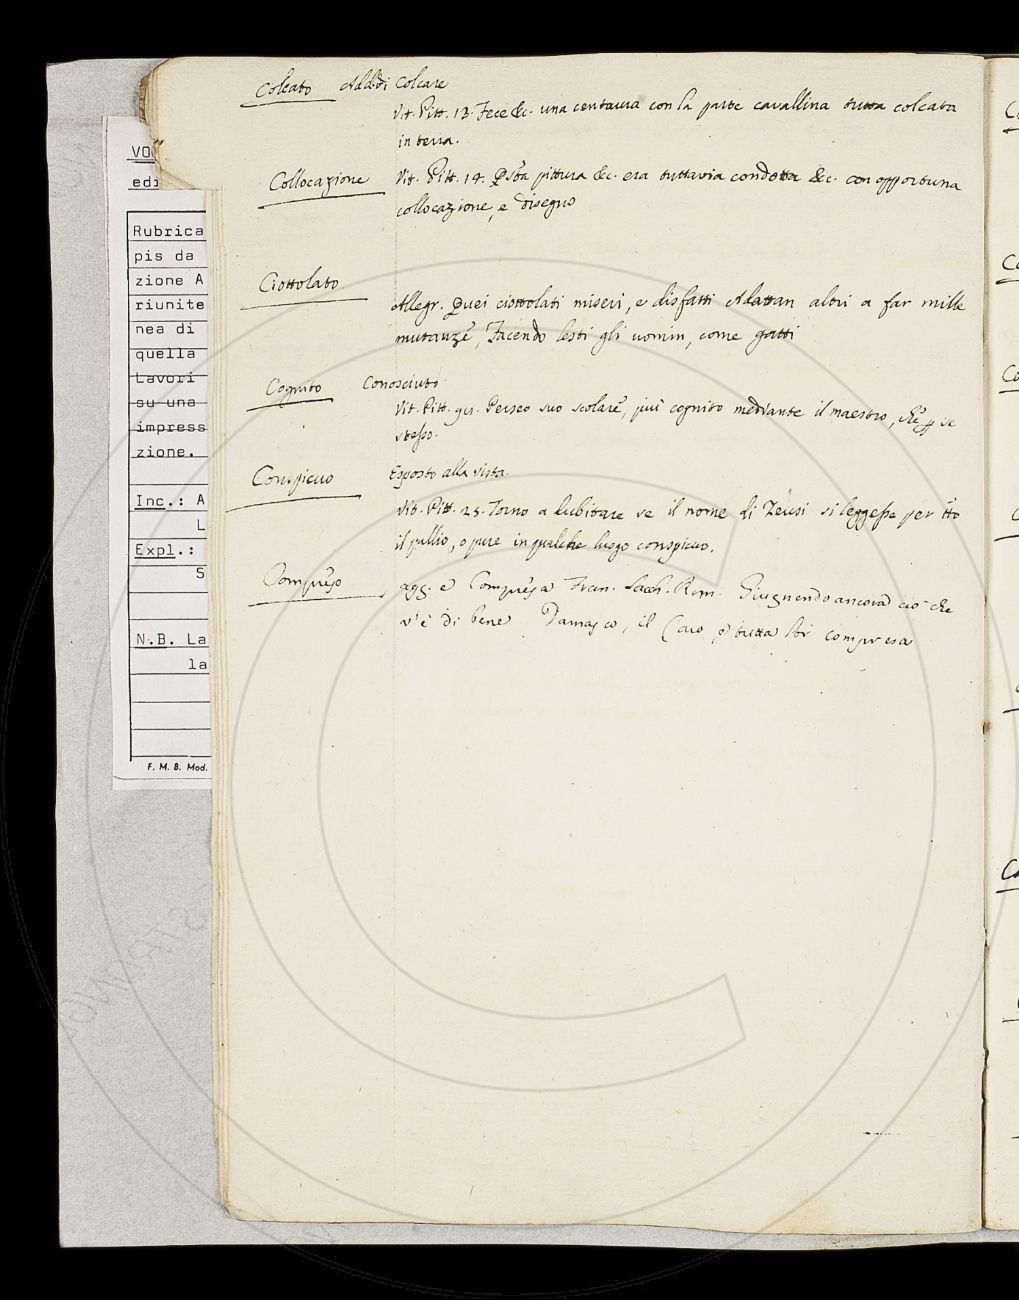 VO
edi
Rubrica
pis da
zione A
riunite
nea di
quella
Lavori
su una
impress
zione.
Inc.: A
L
Expl.:
S
N.B. La
la
F. M. B. Mod.
Colcato Add. di Colcare
Vit. Pitt. 13. Fece &c. una centaura con la parte cavallina tutta colcata
in terra.
Collocazione Vit. Pitt. 14. Qsta pittura &c. era tuttavia condotta &c. con opportuna
collocazione, e disegno
Ciottolato
Allegr. Quei ciottolati miseri, e disfatti Adattan altri a far mille
mutanze, Facendo lesti gli uomin, come gatti
Cognito Conosciuto
Vit. Pitt. 91. Perseo suo scolare, più cognito mediante il maestro, che p se
stesso.
Conspicuo Esposto alla vista
Vit. Pitt. 25. Torno a dubitare se il nome di Zeusi si leggesse per tto
il pallio, o pure in qualche luogo conspicuo.
Compreso agg. e Compresa Fran. Sacch. Rim. Giugnendo ancora ciò che
v'è di bene Damasco, il Caro, e tutta compresa